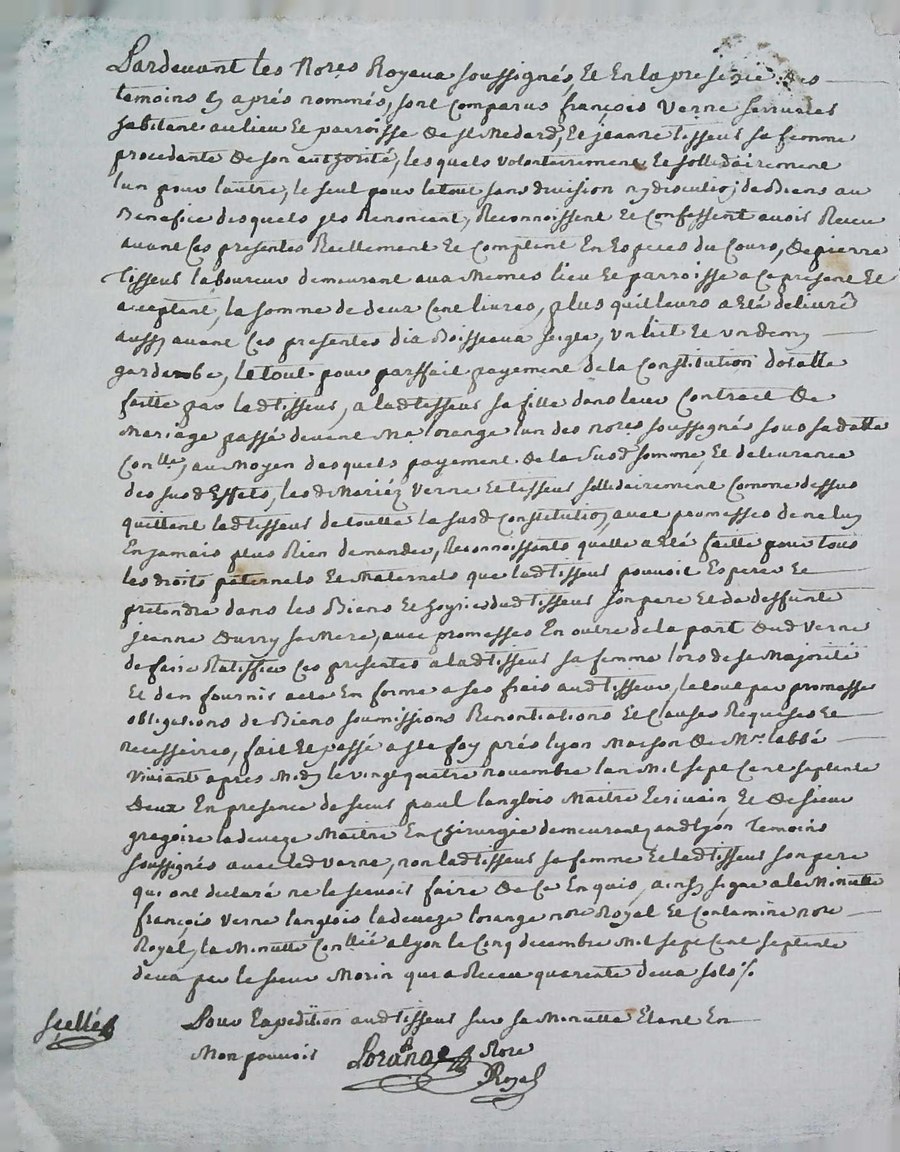 Pardevant les Nores Royaux soussignés, Et En la presence des
temoins cy aprés nommés, sont Comparus françois Verne serrurier
habitant au lieu Et parroisse de st Medard, Et jeanne tisseur sa femme
procedante de son authorité, lesquels volontairement Et sollidairement
l'un pour l'autre, le seul pour le tout sans division ny discution de Biens au
Benefice desquels ils Renoncent, Reconnoissent Et Confessent avoir Receu
avant Ces presentes Reellement Et Comptant En Especes du Cours, de pierre
tisseur laboureur demeurant aux Memes lieu Et parroisse a Ce present Et
acceptant, la somme de deux Cent livres, plus quil leurs a Eté delivré
aussy avant Ces presentes dix Boisseaux seigle, un lict Et un demy
garderobe, le tout pour parffait payement de la Constitution dotalle
faitte par led tisseur, a lad tisseur sa fille dans leur Contract de
Mariage passé devant Me lorange l'un des nores soussignés sous sa datte
Conllé, au Moyen desquels payement de la susd somme, Et delivrance
des susd Effets, les d Mariéz Verne Et tisseur sollidairement Comme dessus
quittent led tisseur de toutte la susd Constitution, avec promesses de ne luy
En jamais plus Rien demander, Reconnoissants quelle a Eté faitte pour tous
les droits paternels Et Maternels que lad tisseur pouvoit Esperer Et
pretendre dans les Biens Et hoyrie dud tisseur son pere Et de deffunte
jeanne Durry sa Mere, avec promesses En outre de la part dud Verne
de faire Ratiffier Ces presentes a lad tisseur sa femme lors de sa Majorité
Et d'en fournir acte En forme a ses frais aud tisseur, le tout par promesse
obligations de Biens soumissions Renontiations Et Clauses Requises Et
necessaires, fait Et passé a ste foy prés lyon Maison de Mr. labbé
Viviant aprés Midy le vingt quatre novembre lan Mil sept Cent septente
deux En presence de sieur paul langlois Maitre Ecrivain, Et de sieur
gregoire ladeveze Maitre En Chirurgie demeurant aud lyon temoins
soussignés avec led verne, non lad tisseur sa femme Et led tisseur son pere
qui ont declaré ne le scavoir faire de Ce Enquis, ainsy signé a la Minutte
françois Verne langlois ladeveze lorange nore Royal Et Contamine nore
Royal, la Minutte Conllée a lyon le Cinq decembre Mil sept Cent septente
deux par le sieur Morin qui a Receu quarente deux sols ./.
Pour Expedition aud tisseur sur sa Minutte Etant En
Mon pouvoir Lorange Nore
Royal
scellé